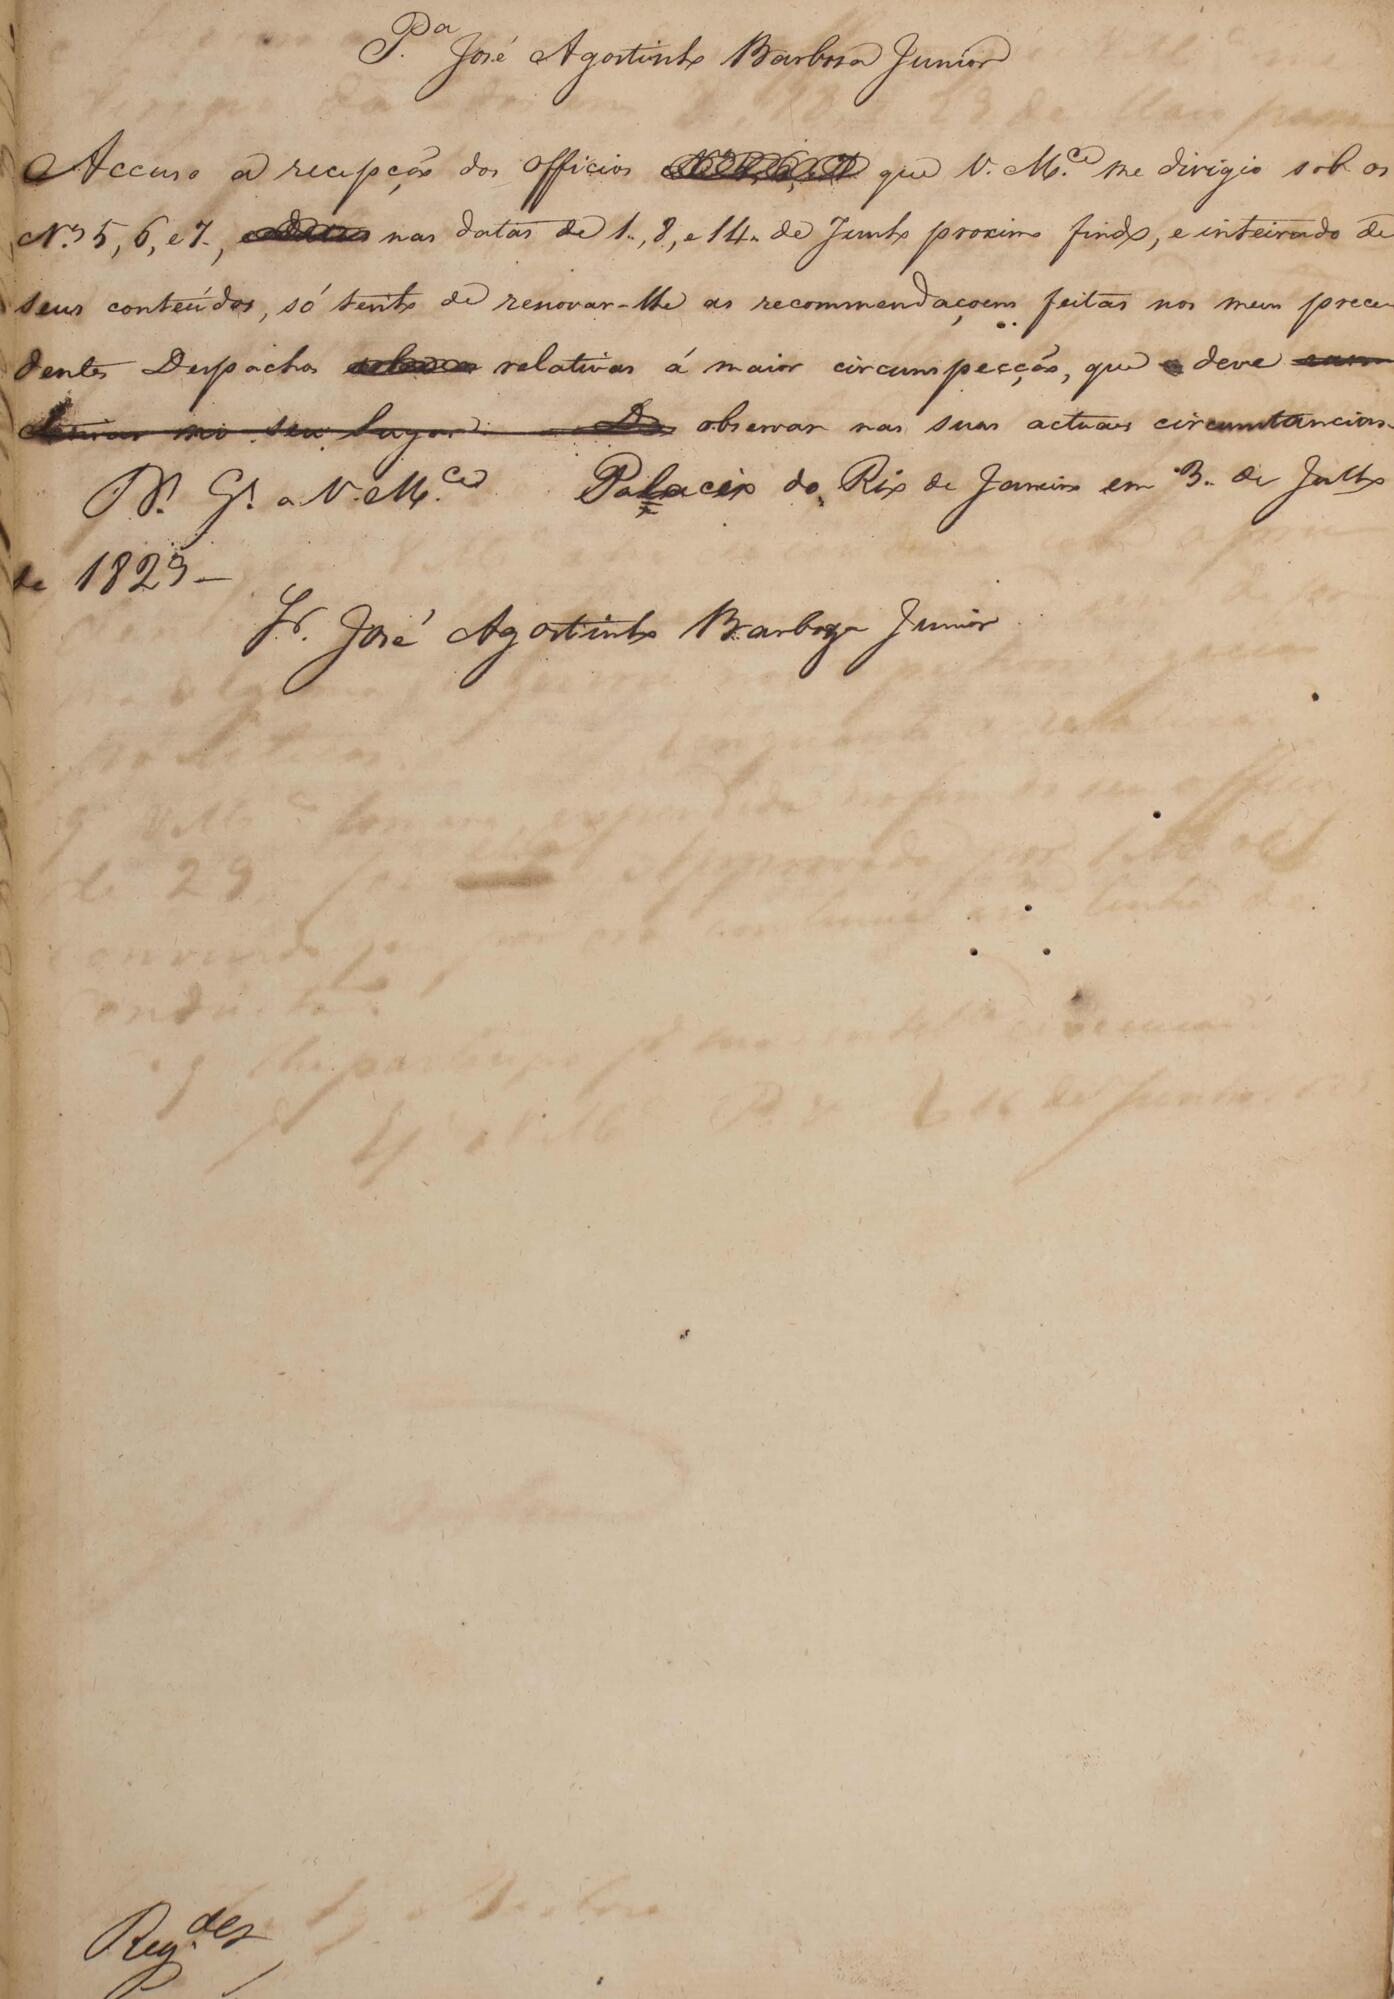 P.ª José Agostinho Barbosa Junior
Accuso a recepção dos officios que V. M.ce me dirigio sob os
N.os 5, 6, e 7, nas datas de 1., 8, e 14. de Junho proximo findo, e inteirado de
seus conteúdos, só tenho de renovar-lhe as recommendaçoens feitas nos meus prece-
dentes Despachos relativas á maior circunspecção, que deve
no seu lugar observar nas suas actuaes circumstancias.
D.s G.e a V. M.ce Palacio do Rio de Janeiro em 3. de Julho
de 1823 —
Sr. José Agostinho Barboza Junior
Reg.des